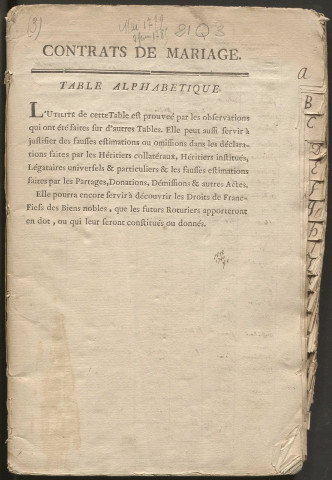 (3)
21Q3
CONTRATS DE MARIAGE.
TABLE ALPHABETIQUE.
L'UTILITÉ de cette Table est prouvée par les observations
qui ont été faites sur d'autres Tables. Elle peut aussi servir à
justifier des fausses estimations ou omissions dans les déclara-
tions faites par les Héritiers collatéraux, Héritiers institués,
Légataires universels & particuliers & les fausses estimations
faites par les Partages, Donations, Démissions & autres Actes.
Elle pourra encore servir à découvrir les Droits de Franc-
Fiefs des Biens nobles, que les futurs Roturiers apporteront
en dot, ou qui leur seront constitués ou donnés.
a
B
C